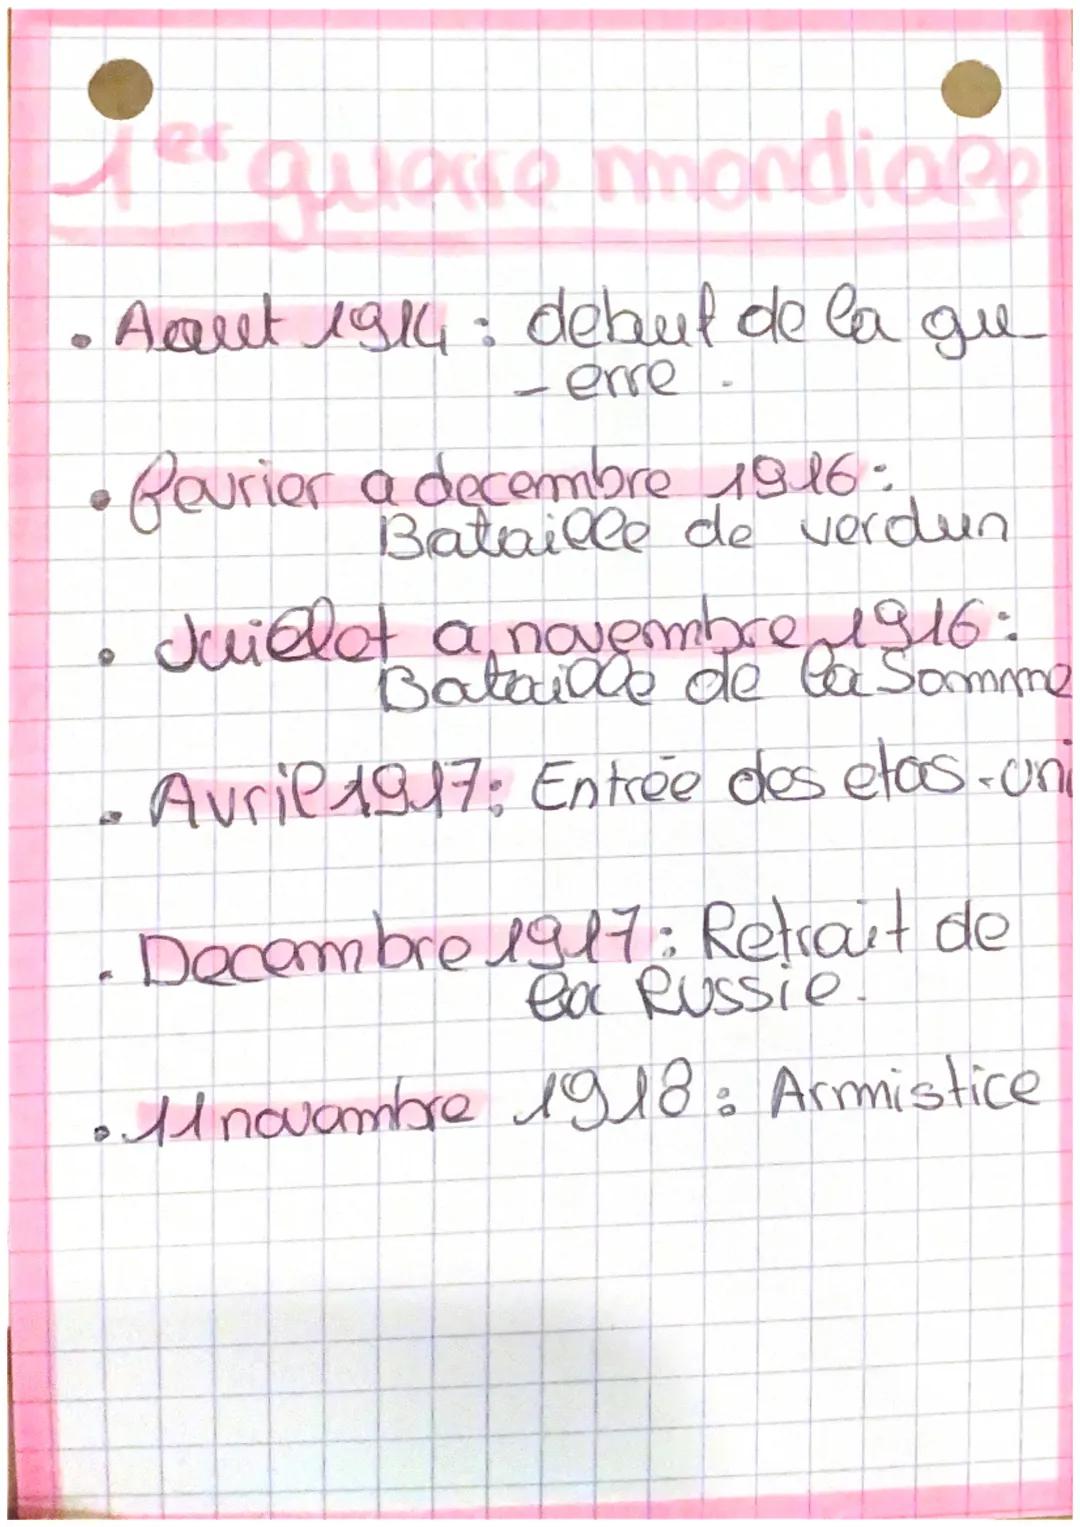 1er guerre mondiale
. Aout 1914 : debut de la gu
- erre .
. fevrier a decembre 1916 :
Bataille de verdun
. Juillet a novembre 1916 :
Bataille de la Somme
. Avril 1917 : Entrée des etas-uni
. Decembre 1917 : Retrait de
la Russie.
. 11 novembre 1918 : Armistice